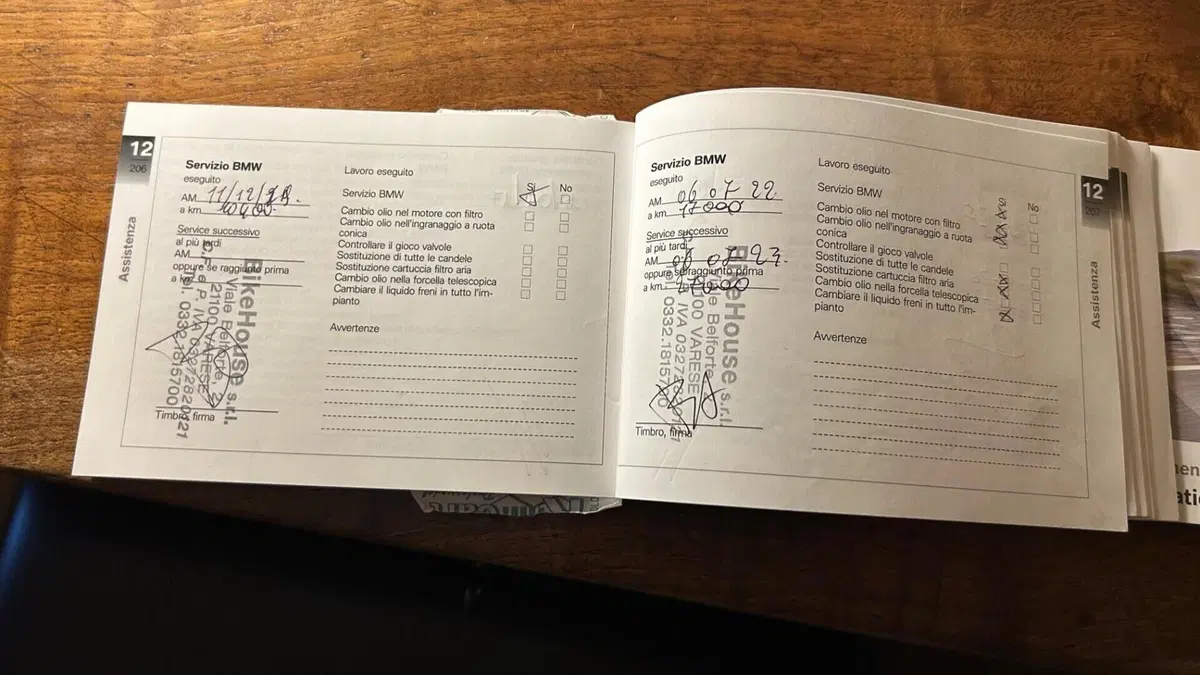 12
206
Assistenza
Servizio BMW
eseguito
AM 11/12/
a km
Service successivo
al più tardi
AM
oppure se raggiunto prima
a km
BikeHouse s.r.l.
Viale Belforte, 2
21100 VARESE
C.F. e P. IVA 03272820121
Tel. 0332.1815700
Timbro, firma
Lavoro eseguito
Sì No
Servizio BMW
Cambio olio nel motore con filtro
Cambio olio nell'ingranaggio a ruota
conica
Controllare il gioco valvole
Sostituzione di tutte le candele
Sostituzione cartuccia filtro aria
Cambio olio nella forcella telescopica
Cambiare il liquido freni in tutto l'im-
pianto
Avvertenze
Servizio BMW
eseguito
AM 06 07 22
a km 17000
Service successivo
al più tardi
AM 06 07 23.
oppure se raggiunto prima
a km 27000
BikeHouse s.r.l.
Viale Belforte
21100 VARESE
IVA
0332.1815700
Timbro, firma
Lavoro eseguito
No
Servizio BMW
Cambio olio nel motore con filtro
Cambio olio nell'ingranaggio a ruota
conica
Controllare il gioco valvole
Sostituzione di tutte le candele
Sostituzione cartuccia filtro aria
Cambio olio nella forcella telescopica
Cambiare il liquido freni in tutto l'im-
pianto
Avvertenze
12
207
Assistenza